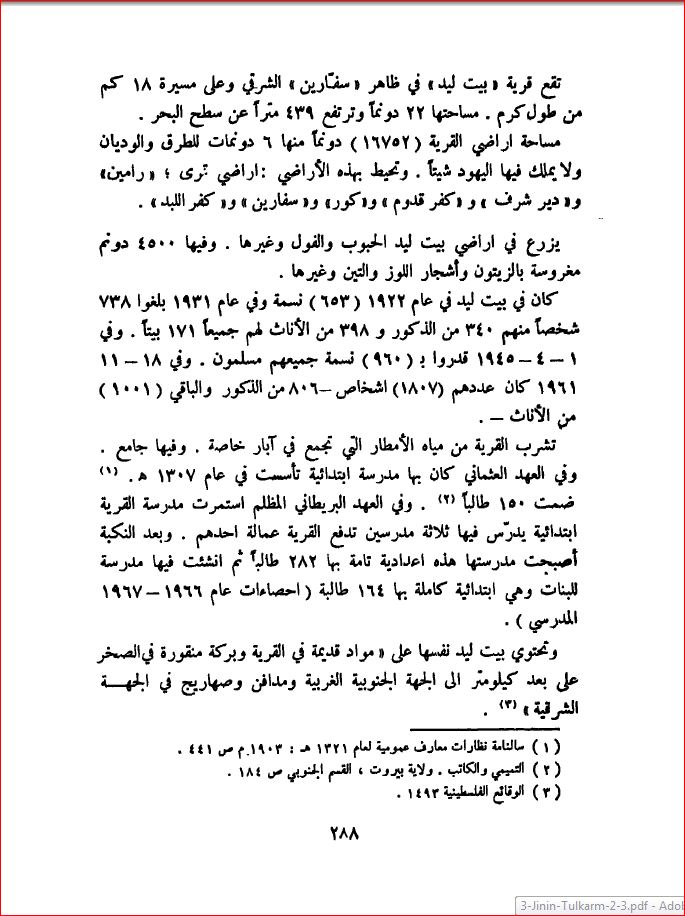 تقع قرية «بيت ليد» في ظاهر «سفّارين» الشرقي وعلى مسيرة ١٨ كم
من طولكرم . مساحتها ٢٢ دونماً وترتفع ٤٣٩ متراً عن سطح البحر .
مساحة اراضي القرية (١٦٧٥٢) دونماً منها ٦ دونمات للطرق والوديان
ولا يملك فيها اليهود شيئاً . وتحيط بهذه الأراضي :اراضي قرى ؛ «رامين»
و«دير شرف» و «كفر قدوم» و«كور» و«سفارين» و«كفر اللبد» .
يزرع في اراضي بيت ليد الحبوب والفول وغيرها . وفيها ٤٥٠٠ دونم
مغروسة بالزيتون وأشجار اللوز والتين وغيرها .
كان في بيت ليد في عام ١٩٢٢ (٦٥٣) نسمة وفي عام ١٩٣١ بلغوا ٧٣٨
شخصاً منهم ٣٤٠ من الذكور و ٣٩٨ من الأناث لهم جميعاً ١٧١ بيتاً . وفي
١ – ٤ – ١٩٤٥ قدروا بـ (٩٦٠) نسمة جميعهم مسلمون . وفي ١٨ – ١١
١٩٦١ كان عددهم (١٨٠٧) اشخاص –٨٠٦ من الذكور والباقي (١٠٠١)
من الأناث – .
تشرب القرية من مياه الأمطار التي تجمع في آبار خاصة . وفيها جامع .
وفي العهد العثماني كان بها مدرسة ابتدائية تأسست في عام ١٣٠٧ هـ . (١)
ضمت ١٥٠ طالباً (٢) . وفي العهد البريطاني المظلم استمرت مدرسة القرية
ابتدائية يدرّس فيها ثلاثة مدرسين تدفع القرية عمالة احدهم . وبعد النكبة
أصبحت مدرستها هذه اعدادية تامة بها ٢٨٢ طالباً ثم انشئت فيها مدرسة
للبنات وهي ابتدائية كاملة بها ١٦٤ طالبة (احصاءات عام ١٩٦٦ – ١٩٦٧
المدرسي) .
وتحتوي بيت ليد نفسها على «مواد قديمة في القرية وبركة منقورة في الصخر
على بعد كيلومتر الى الجهة الجنوبية الغربية ومدافن وصهاريج في الجهـــة
الشرقية» (٣) .
(١) سالنامة نظارات معارف عمومية لعام ١٣٢١ هـ : ١٩٠٣ م ص ٤٤١ .
(٢) التميمي والكاتب . ولاية بيروت ، القسم الجنوبي ص ١٨٤ .
(٣) الوقائع الفلسطينية ١٤٩٣ .
٢٨٨
3-Jinin-Tulkarm-2-3.pdf - Adob